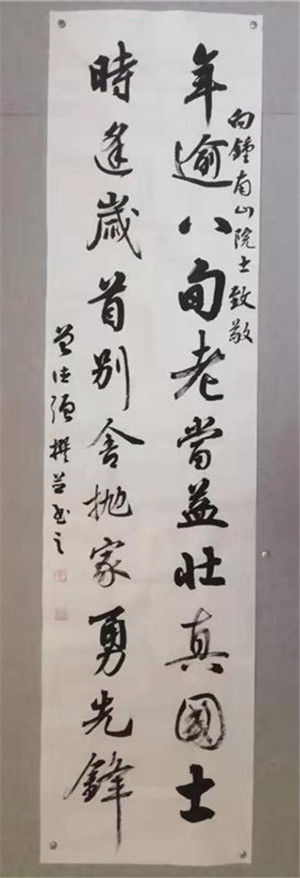 向鍾南山院士致敬
年逾八旬老當益壯真國士
時逢歲首別舍拋家勇先鋒
曾德强撰并書之